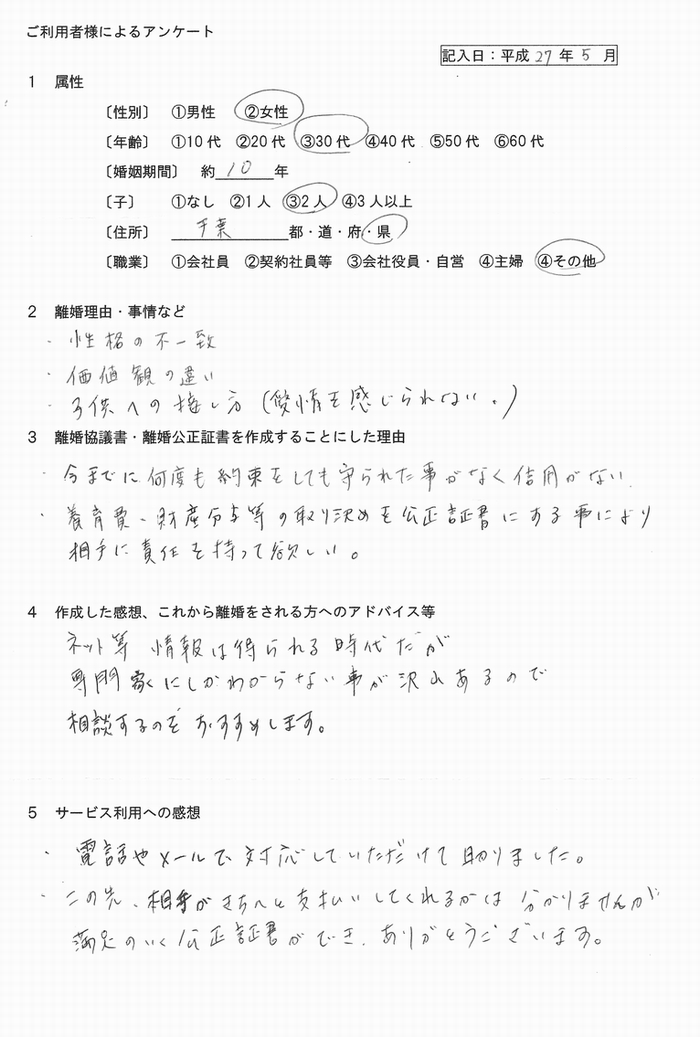 ご利用者様によるアンケート
記入日：平成 27 年 5 月
1 属性
〔性別〕 ①男性 ②女性
〔年齢〕 ①10代 ②20代 ③30代 ④40代 ⑤50代 ⑥60代
〔婚姻期間〕 約 10 年
〔子〕 ①なし ②1人 ③2人 ④3人以上
〔住所〕 千葉 都・道・府・県
〔職業〕 ①会社員 ②契約社員等 ③会社役員・自営 ④主婦 ④その他
2 離婚理由・事情など
・性格の不一致
・価値観の違い
・子供への接し方（愛情を感じられない。）
3 離婚協議書・離婚公正証書を作成することにした理由
・今までに何度も約束をしても守られた事がなく信用がない．
・養育費、財産分与等の取り決めを公正証書にする事により
相手に責任を持って欲しい。
4 作成した感想、これから離婚をされる方へのアドバイス等
ネット等 情報は得られる時代だが
専門家にしかわからない事が沢山あるので
相談するのをおすすめします。
5 サービス利用への感想
・電話やメールで対応していただけて助りました。
・この先、相手がきちんと支払いしてくれるかは分かりませんが
満足のいく公正証書ができ、ありがとうございます。